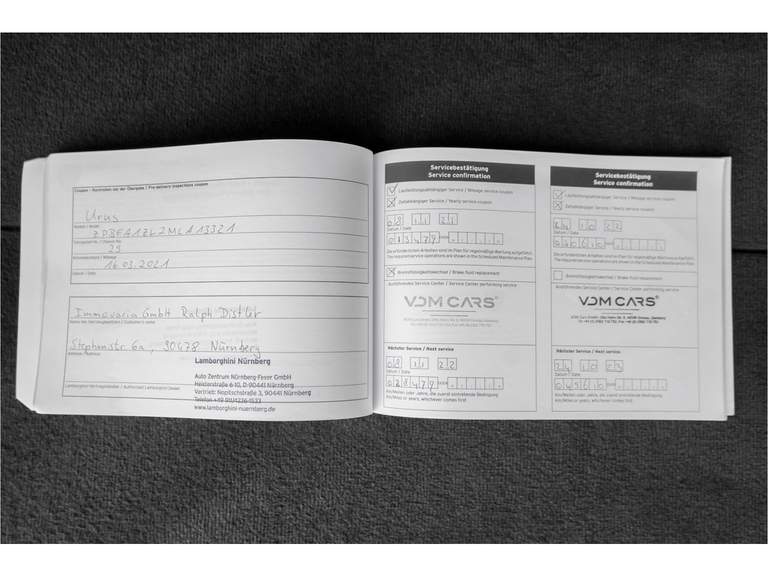 Coupon - Kontrollen vor der Übergabe / Pre-delivery inspections coupon
Urus
Modell / Model
ZPBEA1ZL2MLA13321
Fahrgestell-Nr. / Chassis No.
39
Kilometerstand / Mileage
16.03.2021
Datum / Date
Immovaria GmbH Ralph Distler
Name des Vertragspartners / Customer's name
Stephanstr 6a, 90478 Nürnberg
Adresse / Address
Lamborghini Nürnberg
Auto Zentrum Nürnberg-Feser GmbH
Heisterstraße 6-10, D-90441 Nürnberg
Vertrieb: Nopitschstraße 3, 90441 Nürnberg
www.lamborghini-nuernberg.de
Servicebestätigung
Service confirmation
Laufleistungsabhängiger Service / Mileage service coupon
Zeitabhängiger Service / Yearly service coupon
08 11 21
Datum / Date
013479
Die erforderlichen Arbeiten sind im Plan für regelmäßige Wartung aufgeführt.
The required service operations are shown in the Scheduled Maintenance Plan.
Bremsflüssigkeitswechsel / Brake fluid replacement
Ausführendes Service Center / Service Center performing service
VDM CARS
Nächster Service / Next service
08 11 22
Datum / Date
028479
Km/Meilen oder Jahre, die zuerst eintretende Bedingung
Km/Miles or years, whichever comes first
Servicebestätigung
Service confirmation
Laufleistungsabhängiger Service / Mileage service coupon
Zeitabhängiger Service / Yearly service coupon
24 10 22
Datum / Date
Die erforderlichen Arbeiten sind im Plan für regelmäßige Wartung aufgeführt.
The required service operations are shown in the Scheduled Maintenance Plan.
Bremsflüssigkeitswechsel / Brake fluid replacement
Ausführendes Service Center / Service Center performing service
VDM CARS
Nächster Service / Next service
24 10 23
Datum / Date
Km/Meilen oder Jahre, die zuerst eintretende Bedingung
Km/Miles or years, whichever comes first